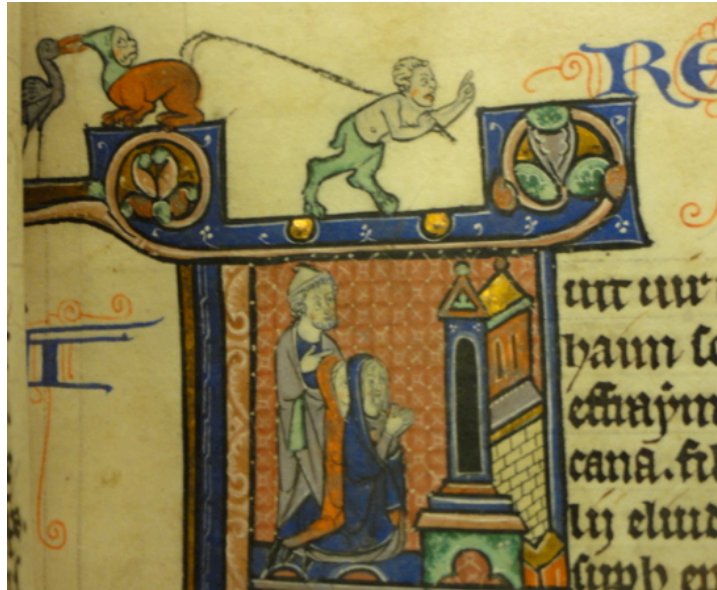 RE
I
uit uir
haim so
effraym
cana. fil
lij eliud
suph ep